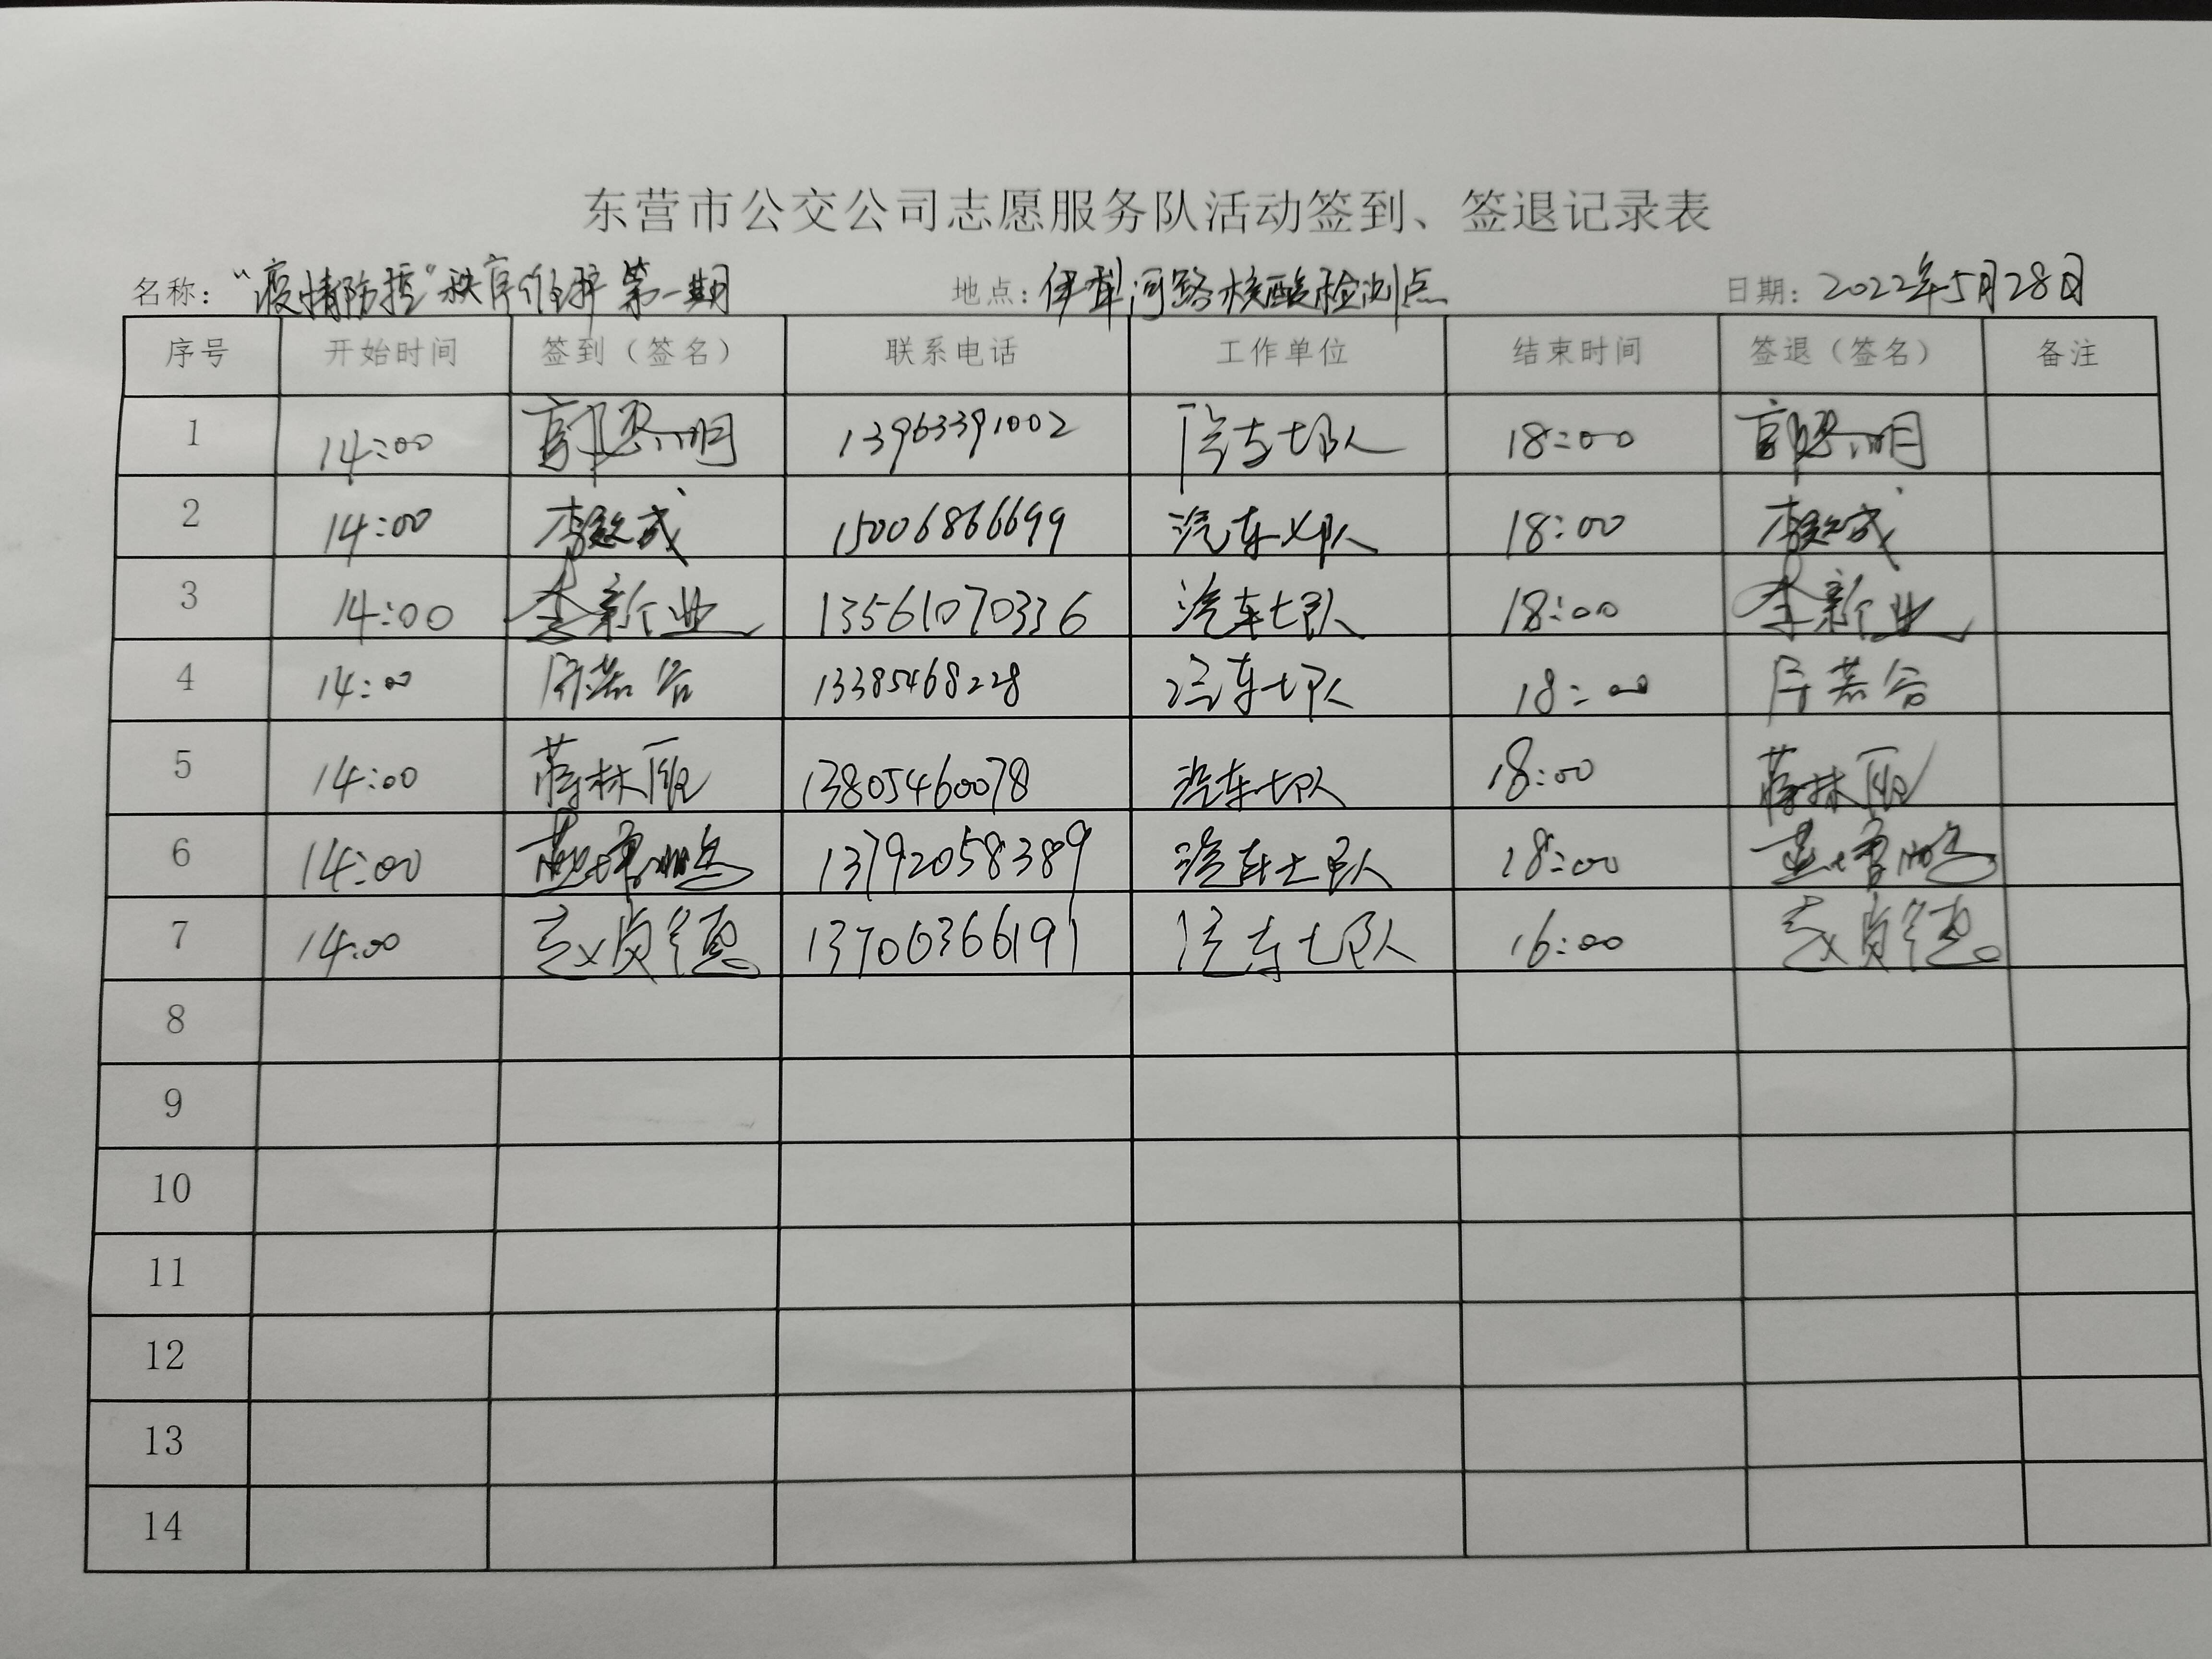 东营市公交公司志愿服务队活动签到、签退记录表
名称：“疫情防控”秩序维护第一期 地点：伊犁河路核酸检测点 日期：2022年5月28日
序号 开始时间 签到（签名） 联系电话 工作单位 结束时间 签退（签名） 备注
1 14:00 13963391002 汽车七队 18:00
2 14:00 15006866699 汽车七队 18:00
3 14:00 李新业 13561070336 汽车七队 18:00 李新业
4 14:00 13385468228 汽车七队 18:00
5 14:00 13805460078 汽车七队 18:00
6 14:00 13792058389 汽车七队 18:00
7 14:00 13706366191 汽车七队 16:00
8
9
10
11
12
13
14